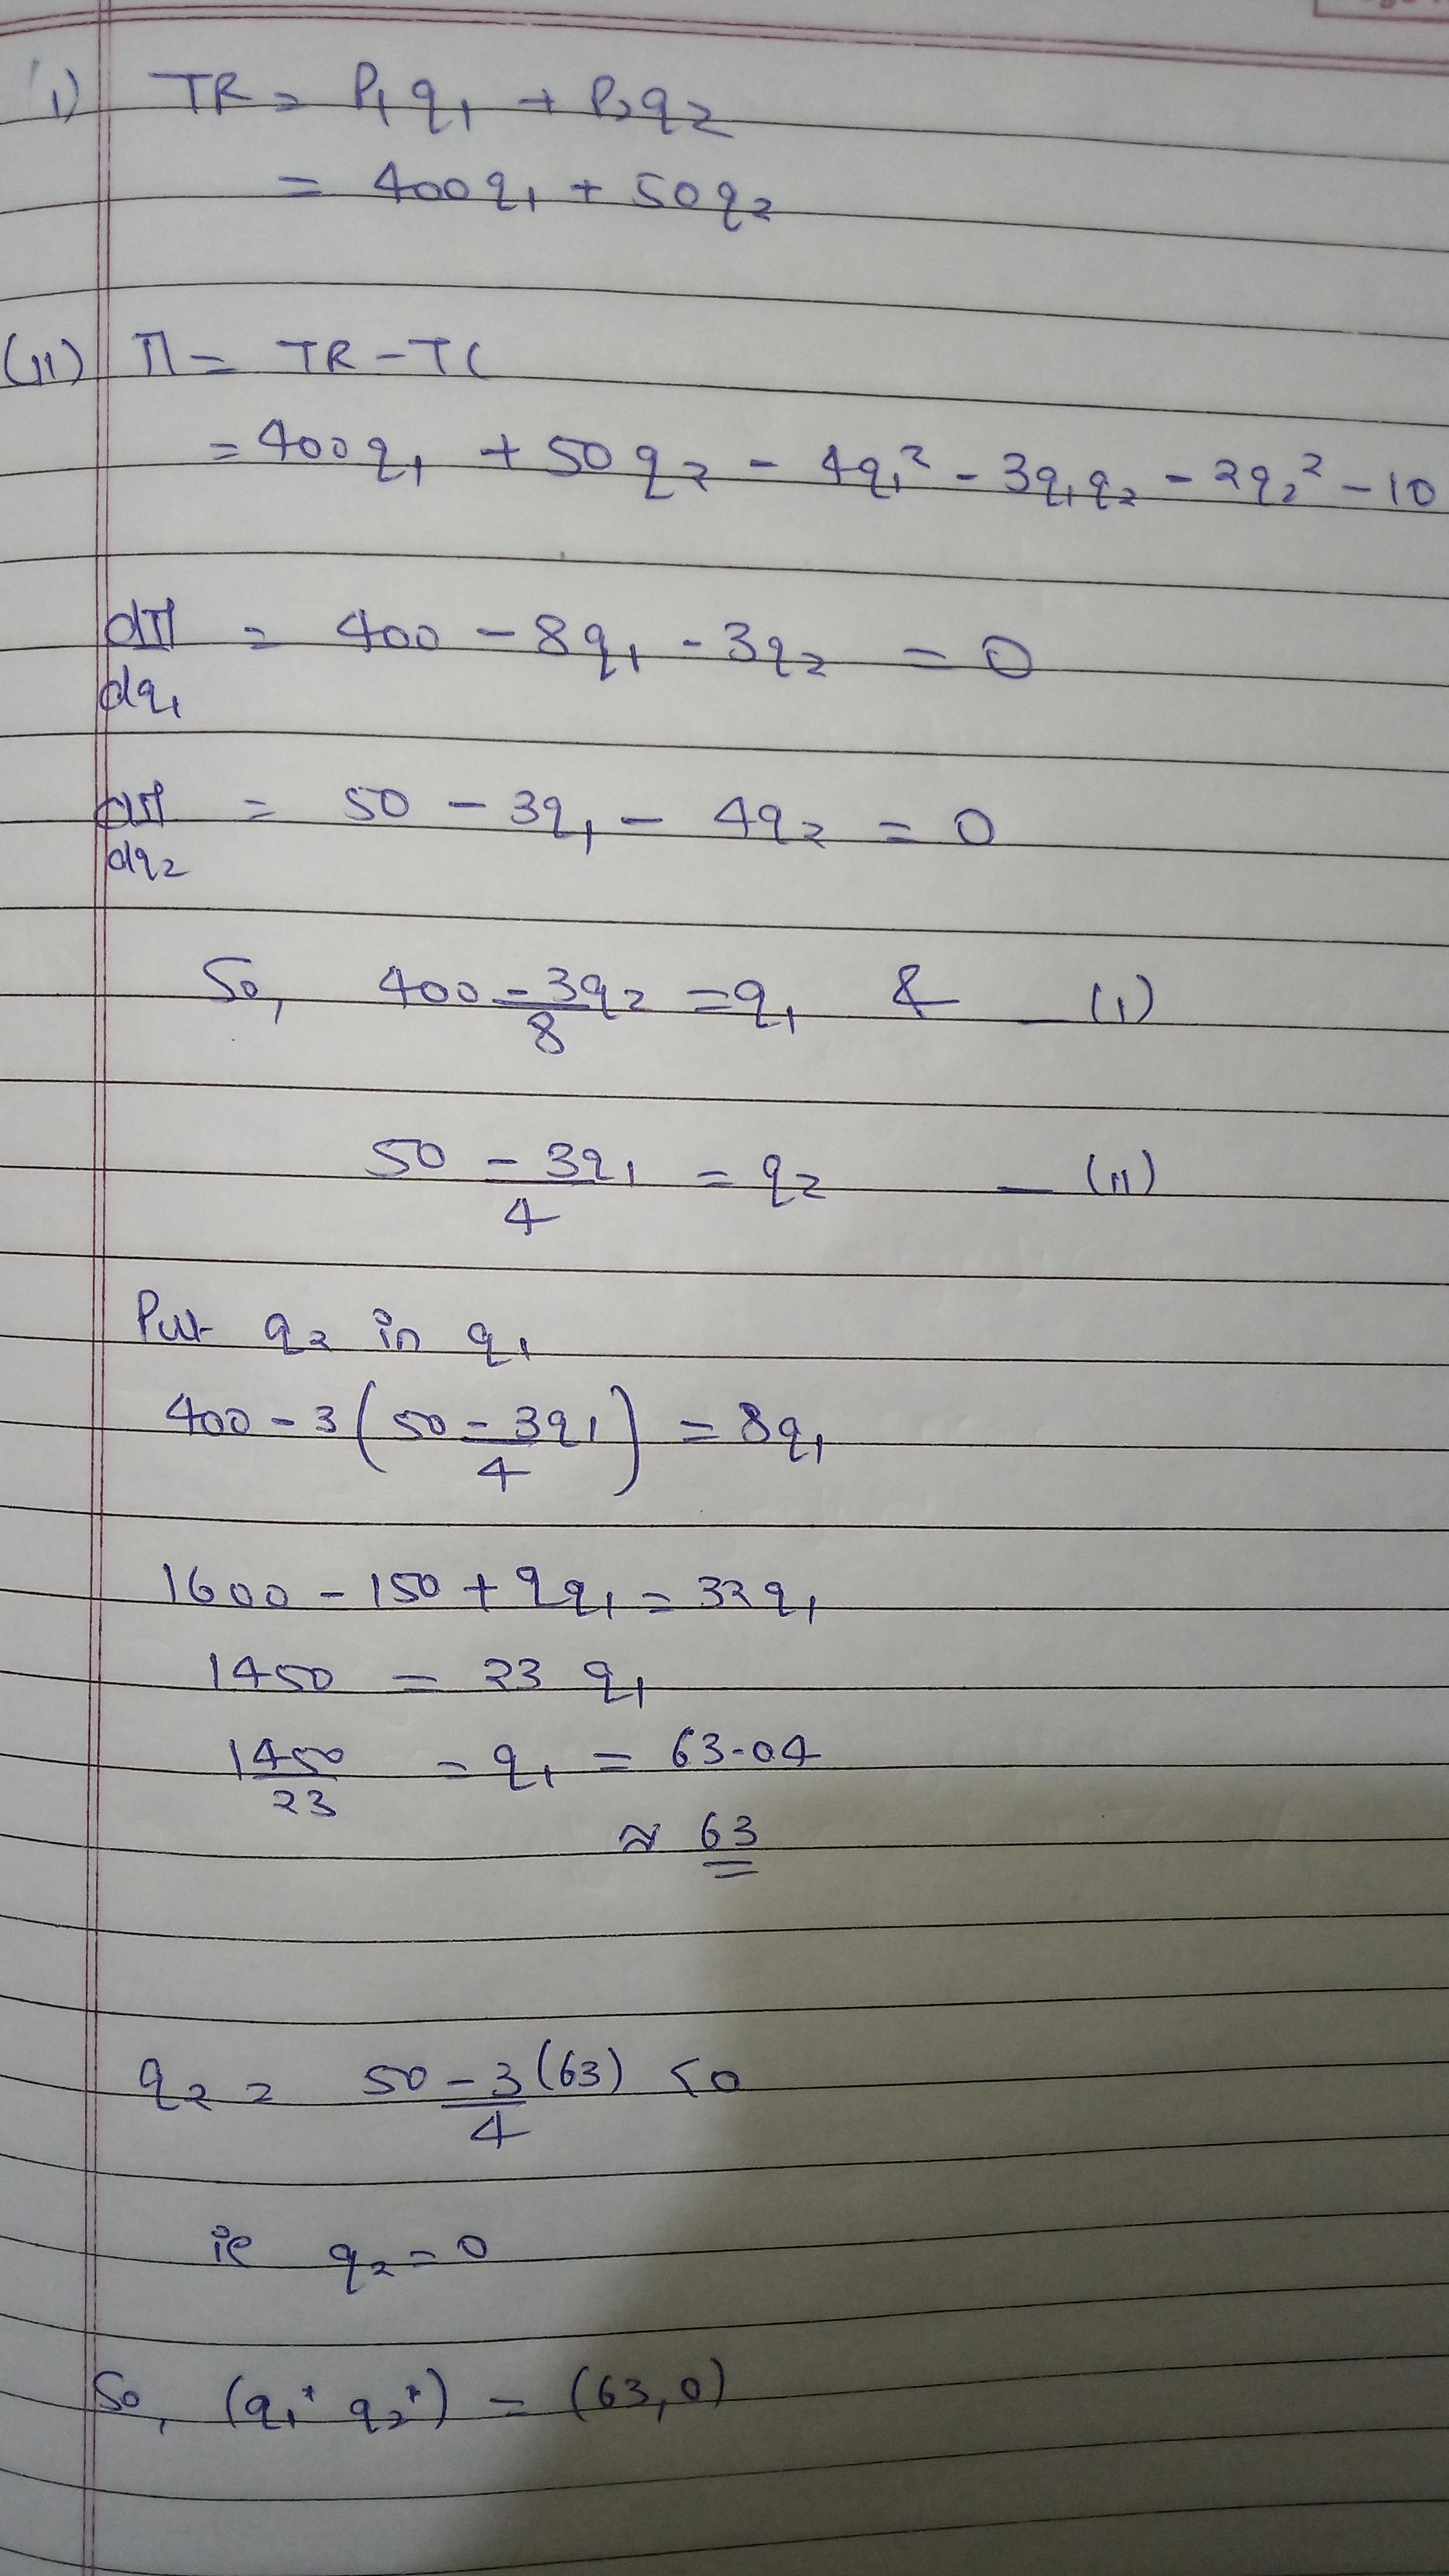 1) TR = P₁q₁ + P₂q₂
= 400q₁ + 50q₂
(11) Π = TR - TC
= 400q₁ + 50q₂ - 4q₁² - 3q₁q₂ - 2q₂² - 10
dΠ/dq₁ = 400 - 8q₁ - 3q₂ = 0
dΠ/dq₂ = 50 - 3q₁ - 4q₂ = 0
So, (400 - 3q₂)/8 = q₁ & — (1)
(50 - 3q₁)/4 = q₂ — (11)
Put q₂ in q₁
400 - 3((50 - 3q₁)/4) = 8q₁
1600 - 150 + 9q₁ = 32q₁
1450 = 23 q₁
1450/23 = q₁ = 63.04
≈ 63
q₂ = (50 - 3(63))/4 < 0
ie q₂ = 0
So, (q₁* q₂*) = (63, 0)